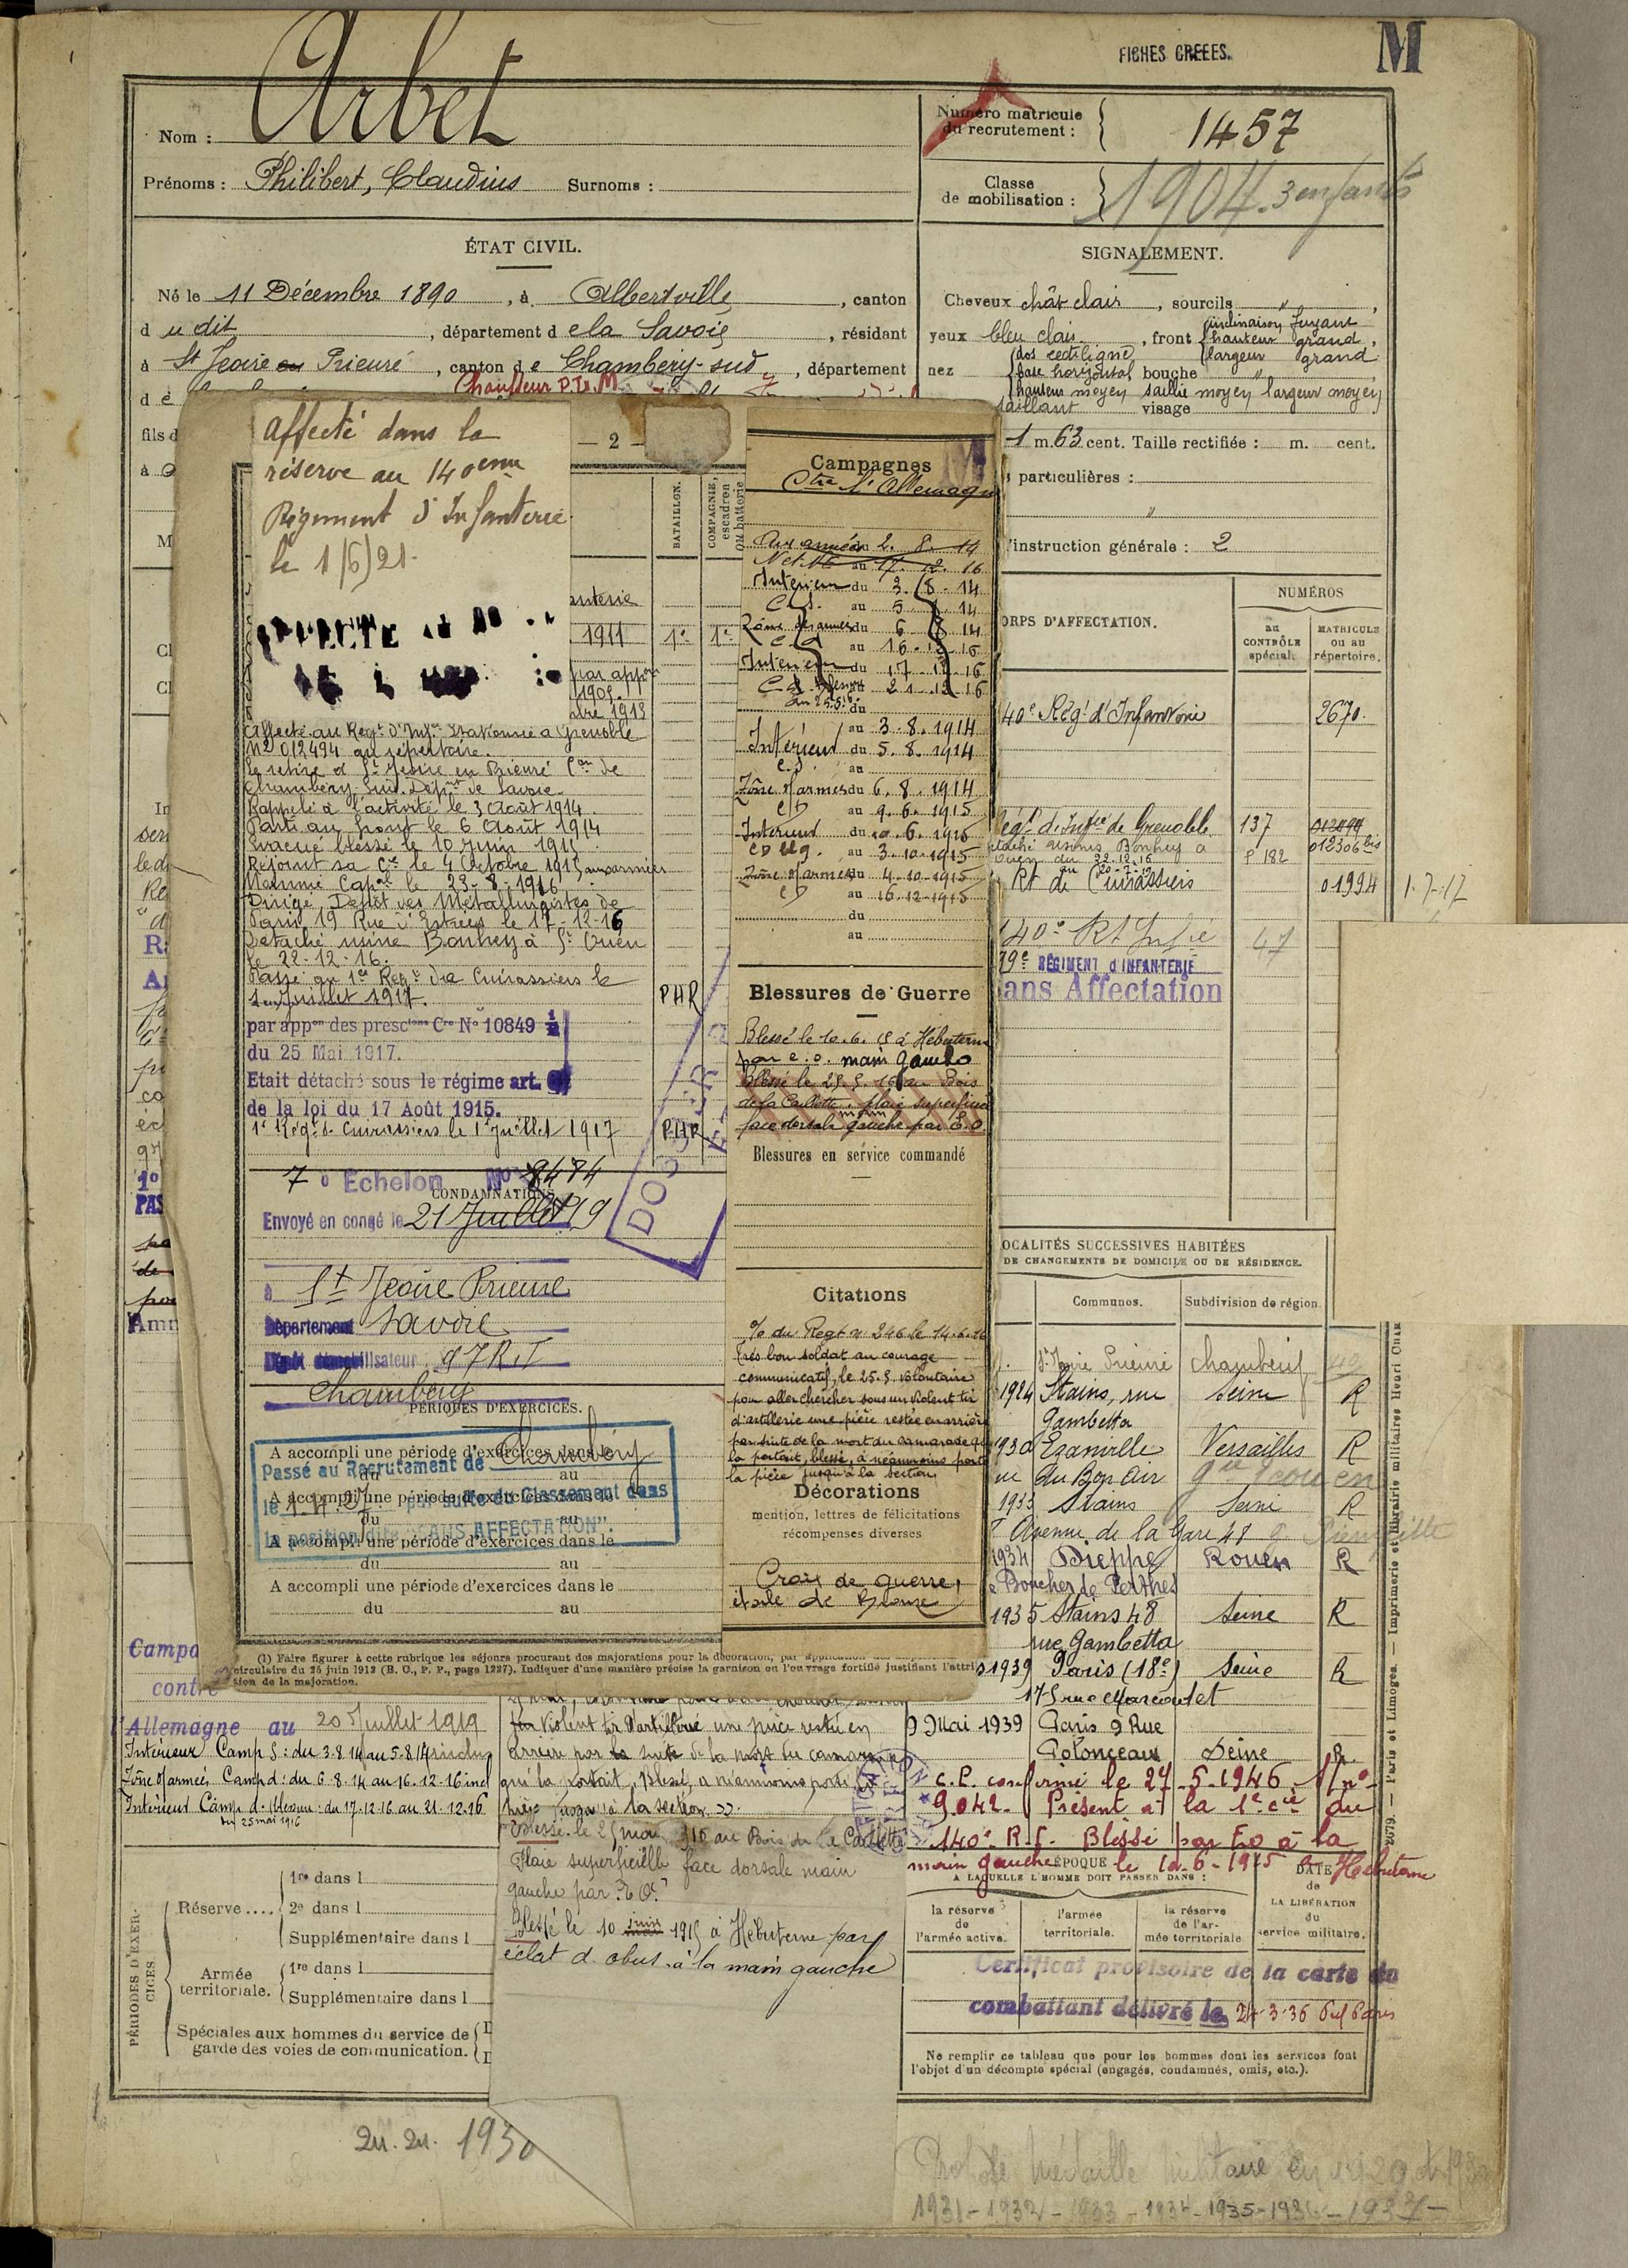 FICHES CREEES.
M
Nom : Arbet
Prénoms : Philibert, Claudius Surnoms :
Numéro matricule du recrutement : 1457
Classe de mobilisation : 1904. 3 enfants
ÉTAT CIVIL.
Né le 11 Décembre 1890, à Albertville, canton
du dit, département de la Savoie, résidant
à St Jeoire en Prieuré, canton de Chambéry-sud, département
d e
Chauffeur P.L.M.
fils d
SIGNALEMENT.
Cheveux chât clair, sourcils "
yeux bleu clair, front inclinaison fuyant
hauteur grand,
largeur grand
nez dos rectiligne
base horizontal bouche "
hauteur moyen saillie moyen largeur moyen
saillant visage
1 m. 63 cent. Taille rectifiée : m. cent.
particulières :
"
'instruction générale : 2
Affecté dans la
réserve au 140eme
Régiment d'Infanterie
le 1/6/21.
— 2 —
BATAILLON.
COMPAGNIE, escadron ou batterie
anterie
1911 1er 1e
par appon
1905.
bre 1913
Affecté au Regt d'Infie stationné à Grenoble
No 012494 au répertoire.
Se retire à St Jeoire en Prieuré Con de
Chambéry-Sud. Dépnt de Savoie.
Rappelé à l'activité le 3 Août 1914.
Parti au front le 6 Août 1914
Evacué blessé le 10 Juin 1915.
Rejoint sa Cie le 4 Octobre 1915 aux armées
Nommé Capal le 23-8-1916.
Dirigé Dépôt des Métallurgistes de
Paris 19 Rue d'Estrées le 17-12-16
Détaché usine Bonhey à St Ouen
le 22-12-16.
Passé au 1er Regt de Cuirassiers le
1er Juillet 1917. PHR
par appon des presctions Cre No 10849
du 25 Mai 1917.
Etait détaché sous le régime art.
de la loi du 17 Août 1915.
1er Régt de Cuirassiers le 1er Juillet 1917 PHR
7e Echelon No 8484
CONDAMNATIONS.
Envoyé en congé le 21 Juillet 19
à St Jeoire Prieuré
Département Savoie
Dépôt démobilisateur 97 R.I
Chambéry
PÉRIODES D'EXERCICES.
A accompli une période d'exercices dans le
du au
A accompli une période d'exercices dans le
du au
A accompli une période d'exercices dans le
du au
A accompli une période d'exercices dans le
du au
Passé au Recrutement de Chambéry
le par suite du Classement dans
la position dite "SANS AFFECTATION".
(1) Faire figurer à cette rubrique les séjours procurant des majorations pour la décoration, par application
circulaire du 25 juin 1912 (B. O., P. P., page 1227). Indiquer d'une manière précise la garnison ou l'ouvrage fortifié justifiant l'attri
tion de la majoration.
Campagnes
Ctre l'Allemagne
Aux armées du 2. 8. 14
au 17. 12. 16
Intérieur du 3. 8. 14
C.S. au 5. 8. 14
Zône des armées du 6. 8. 14
C.d au 16-12-16
Intérieur du 17.12.16
au 21.12.16
du 25.5.16
du
au 3.8.1914
Intérieur du 5.8.1914
C.S. au
Zône d'armées du 6.8.1914
CD au 9.6.1915
Intérieur du 10.6.1915
CD Blg. au 3.10.1915
Zône d'armées du 4.10.1915
CD au 16.12.1915
du
au
Blessures de Guerre
Blessé le 10.6.15 à Hébuterne
par e.o. main gauche
Blessé le 25.5.16 au Bois
de la Caillette, plaie superficielle
face dorsale main gauche par E.O
Blessures en service commandé
Citations
O/ du Regt no 246 le 14.6.16
Très bon soldat au courage
communicatif, le 25.5. volontaire
pour aller chercher sous un violent tir
d'artillerie une pièce restée en arrière
par suite de la mort du camarade qui
la portait, blessé, a néanmoins porté
la pièce jusqu'à la section
Décorations
mention, lettres de félicitations
récompenses diverses
Croix de guerre,
étoile de Bronze
ORPS D'AFFECTATION.
NUMÉROS
au CONTRÔLE spécial.
MATRICULE ou au répertoire.
140e Régt d'Infanterie 2670.
Régt d'Infie de Grenoble 137 012494
étaché usines Bonhey à P 182 012306 bis
Ouen du 22.12.16
Rt de Cuirassiers 01994 1-7-17
140e Rt Infie 47
RÉGIMENT d'INFANTERIE
ans Affectation
OCALITÉS SUCCESSIVES HABITÉES
DE CHANGEMENTS DE DOMICILE OU DE RÉSIDENCE.
Communes. Subdivision de région.
St Jeoire Prieuré Chambéry
1924 Stains, rue Seine R
Gambetta
1930 Ezanville Versailles R
rue du Bon Air
1933 Stains Seine R
Avenue de la Gare 48
1934 Dieppe Rouen R
Boucher de Perthes
1935 Stains 48 Seine R
rue Gambetta
1939 Paris (18e) Seine R
175 rue Marcadet
9 Mai 1939 Paris 9 Rue
Polonceau Seine R.
c.P. confirmé le 27-5-1946. no
9.042. Présent à la 1e cie du
140e R.I. Blessé par E.O à la
main gauche le 10-6-1915 Hébuterne
ÉPOQUE
A LAQUELLE L'HOMME DOIT PASSER DANS :
DATE de LA LIBÉRATION du service militaire.
la réserve de l'armée active.
l'armée territoriale.
la réserve de l'armée territoriale
Certificat provisoire de la carte du
combattant délivré le 24-3-36
Ne remplir ce tableau que pour les hommes dont les services font
l'objet d'un décompte spécial (engagés, condamnés, omis, etc.).
Imprimerie et Librairie militaires Henri CHAR
Paris et Limoges.
Campa
contre
Allemagne au 20 Juillet 1919
Intérieur Camp S : du 3.8.14 au 5.8.14 inclus
Zône d'armées Camp d : du 6.8.14 au 16.12.16 incl
Intérieur Camp d. blessure : du 17.12.16 au 21.12.16
du 25 mai 1916
un violent tir d'artillerie une pièce restée en
arrière par la suite de la mort du camarade
qui la portait, Blessé, a néanmoins porté la
pièce jusqu'à la section ».
Blessé le 25 mai 916 au Bois de la Caillette
Plaie superficielle face dorsale main
gauche par E O.
Blessé le 10 juin 1915 à Hébuterne par
éclat d'obus à la main gauche
PÉRIODES D'EXERCICES
Réserve ....
1re dans l
2e dans l
Supplémentaire dans l
Armée territoriale.
1re dans l
Supplémentaire dans l
Spéciales aux hommes du service de
garde des voies de communication.
1930
Médaille militaire en 1920
1931-1932-1933-1934-1935-1936-1937-